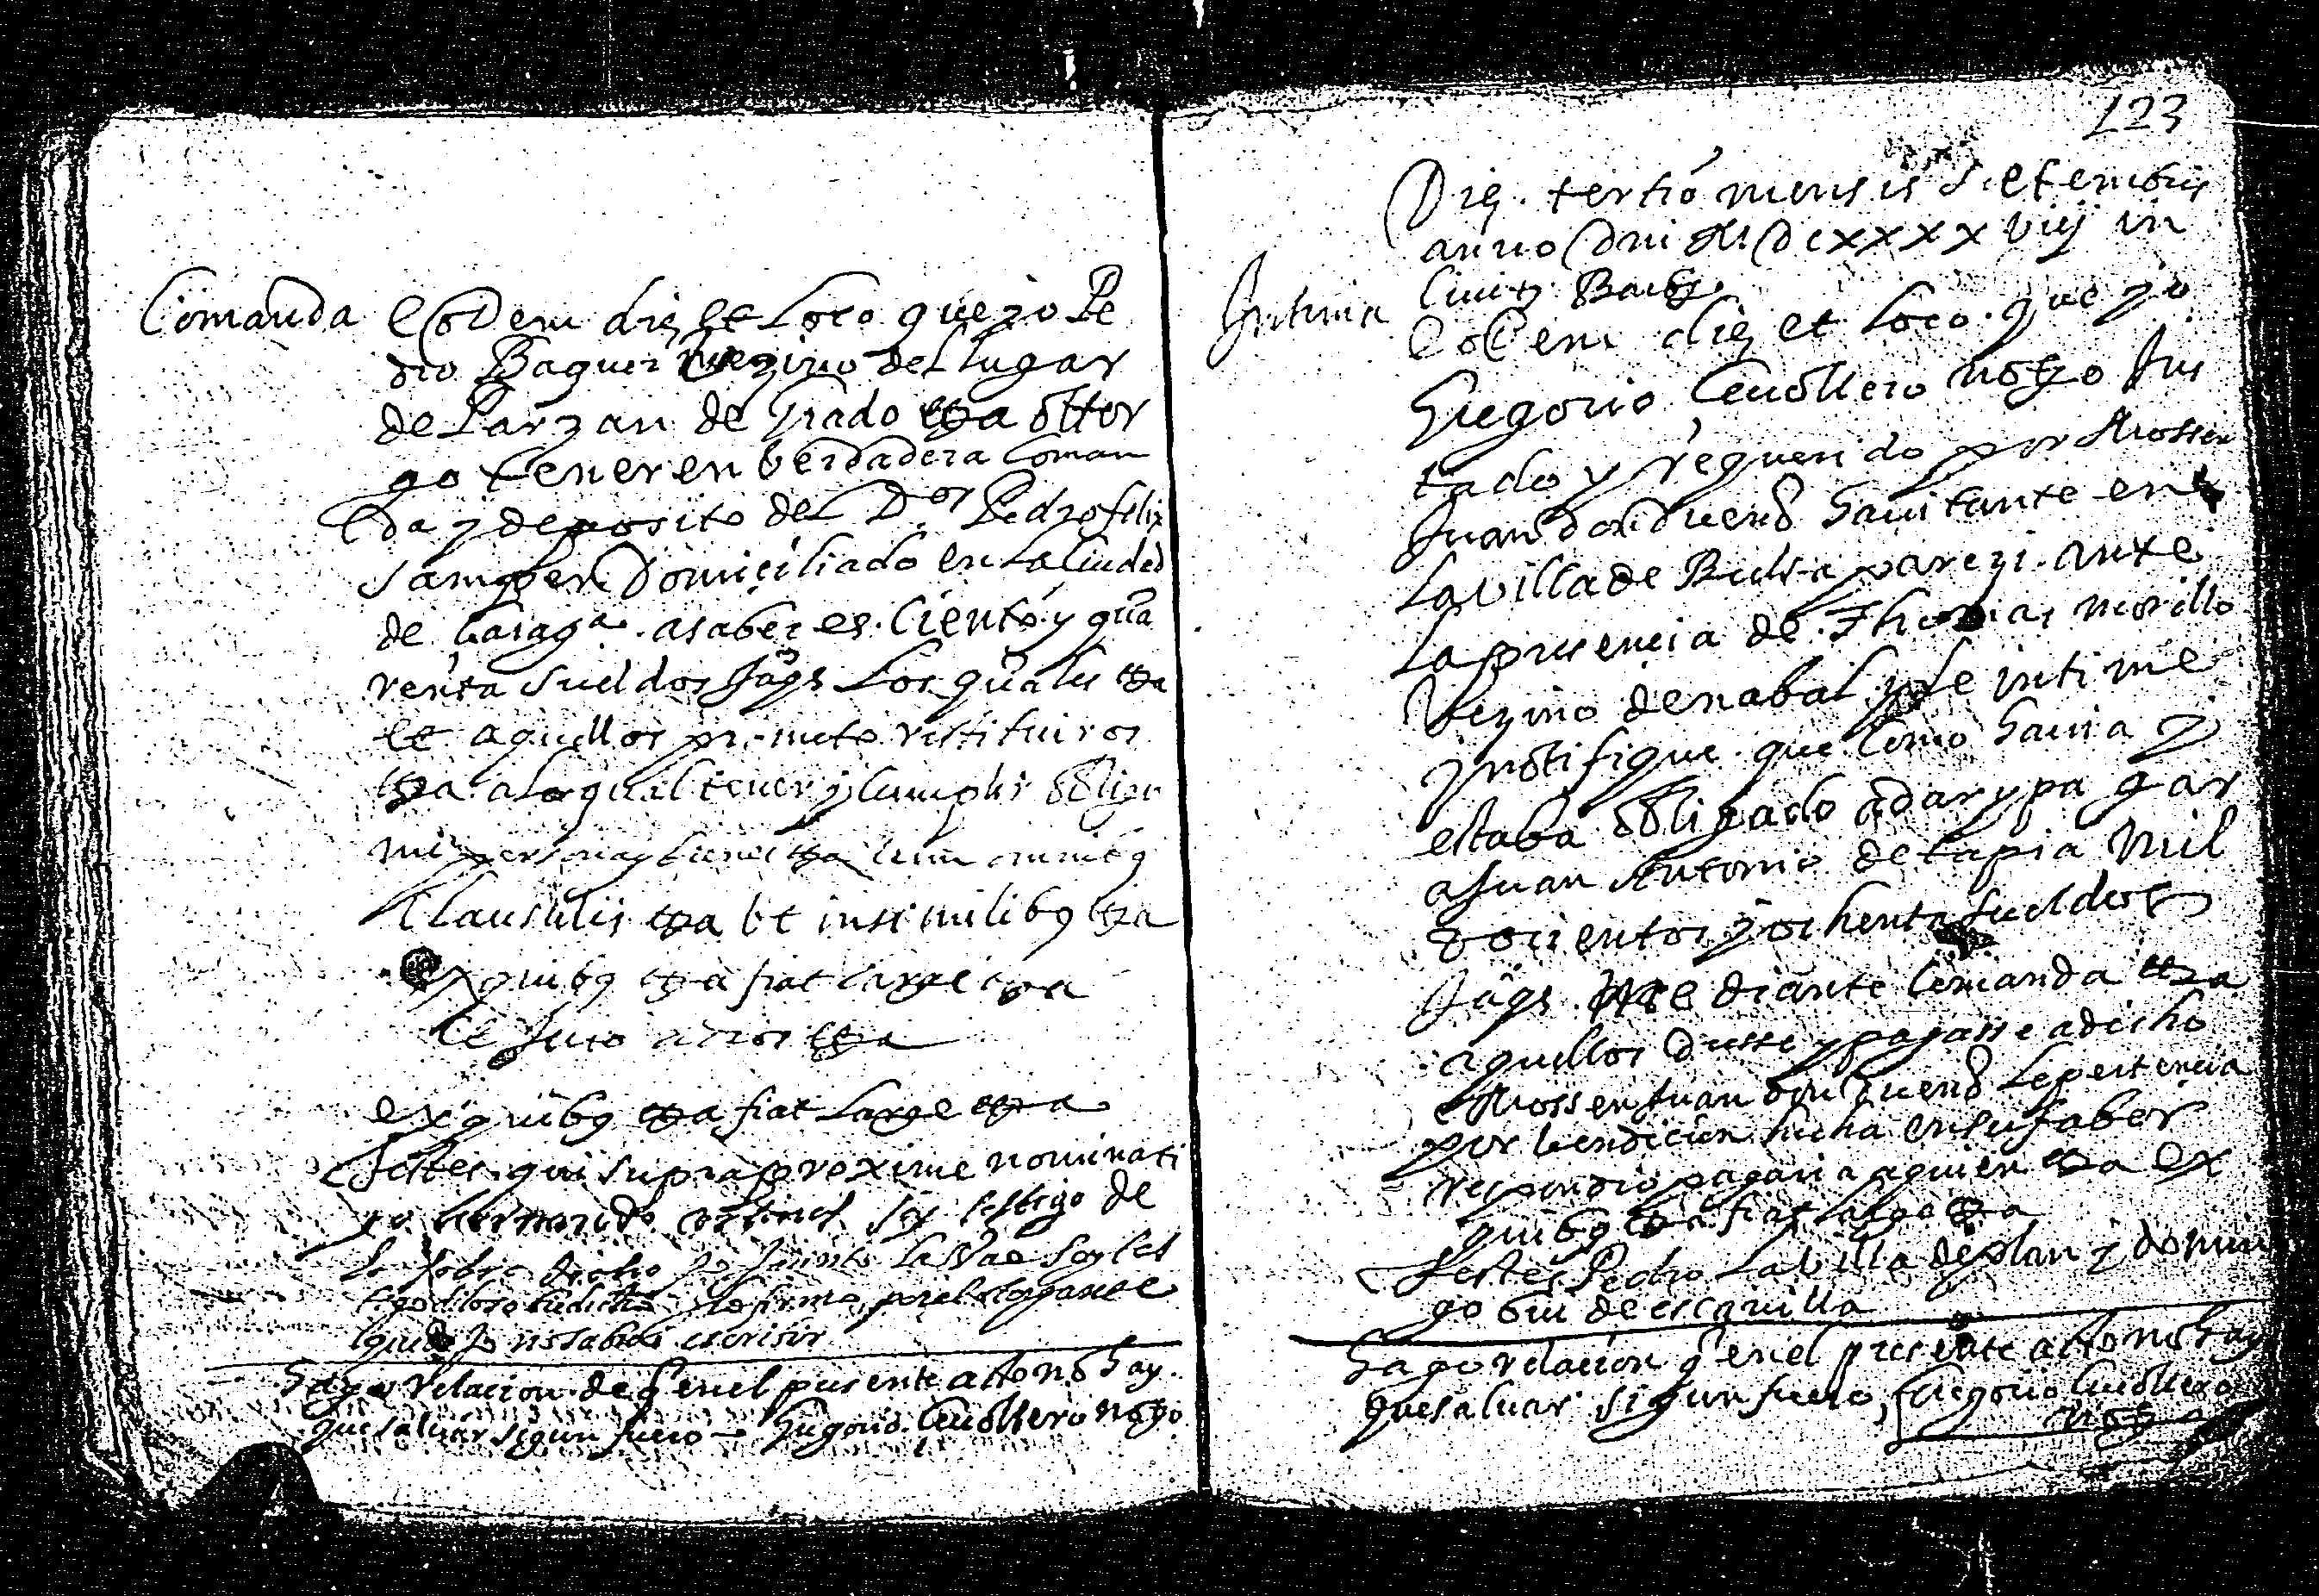 Comanda
eodem die et Loco que yo Pe
dro Baguer vezino del lugar
de Parzan de grado etta ottor
go tener en berdadera Coman
da y deposito del Dor Pedro felix
Samper Domiciliado en la Ciudad
de Caraga. asaber es. Ciento y qua
renta Sueldos Jags Los quales etta
et aquellos prometo restituiros
etta a lo qual tener y cumplir obligo
mi persona y bienes etta cum omnibq
Clausulis etta et in similibq etta
ex quibq etta fiat large etta
et Juro a dios etta
ex quibq etta fiat Large etta
testes. qui supra proxime nominati
yo bernardo soy testigo de
Lo sobre dicho yo Jacinto soy tes
tigo de lo sobredicho y lo firmo por el otorgante
que dixo no sabia escribir
Hago relacion de q en el presente acto no hay
que saluar segun fuero Gregorio Ceuollero notro
123
Die. tertio mensis Setembris
anno Dni M Dc xxxx viij in
Ciuit. Barbi
Intima
eodem die et Loco. que yo
Gregorio Ceuollero notro Ins
tado y requerido por Mossen
Juan don Duend hauitante en
La villa de Bielsa parezi. ante
La presencia de. Thomas morillo
Vezino de nabal y le intime
y notifique. que Como hauia y
estaba obligado a dar y pa gar
a Juan Antonio de tapia mil
docientos y ochenta sueldos
Jags. mediante Comanda etta
aquellos diesse y pagasse a dicho
Mossen Juan don Duend Le pertencia
por bendicion hecha en su fabor
respondio pagaria a quien etta ex
quibq etta fiat large etta
testes Pedro La Villa de plan y domin
go Bui de escanilla
Hago relacion q en el presente acto no hay
que saluar sigun fuero, Gregorio Ceuollero
notro